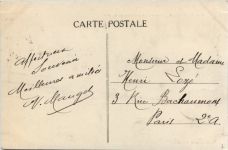 CARTE POSTALE
Affectueux
Souvenir
Meilleures amitiés
Monsieur et Madame
Henri
3 Rue Bachaumont
Paris 2e